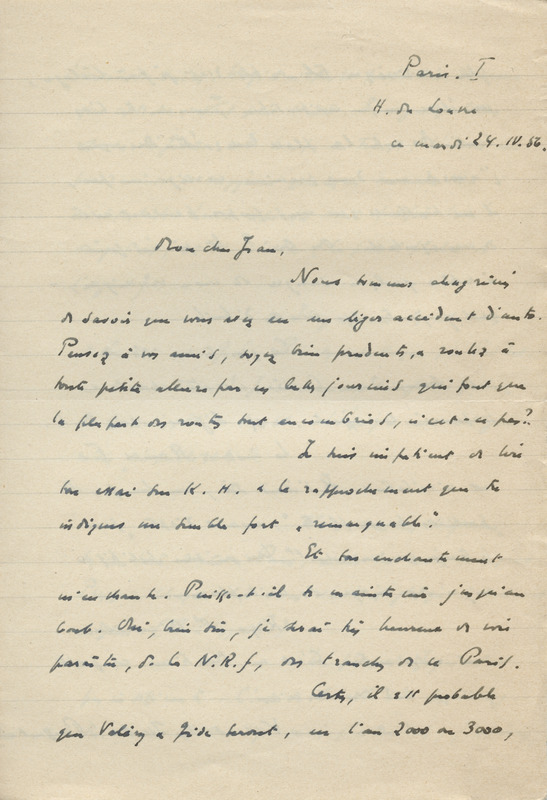 Paris. I
H. du Louvre
ce mardi 24. IV. 56.
Mon cher Jean,
Nous sommes chagrinés
de savoir que vous avez eu un léger accident d'auto.
Pensez à vos amis, soyez bien prudents, et roulez à
toute petite allure par ces belles journées qui font que
la plupart des routes sont encombrées, n'est-ce pas?
Je suis impatient de lire
ton essai sur K. H. et le rapprochement que tu
indiques me semble fort „remarquable".
Et ton enchantement
m'enchante. Puisse-t-il se maintenir jusqu'au
bout. Oui, bien sûr, je serai très heureux de voir
paraître, ds la N.R.f, des tranches de ce Paris.
Certes, il est probable
que Valéry et Gide seront, en l'an 2000 ou 3000,